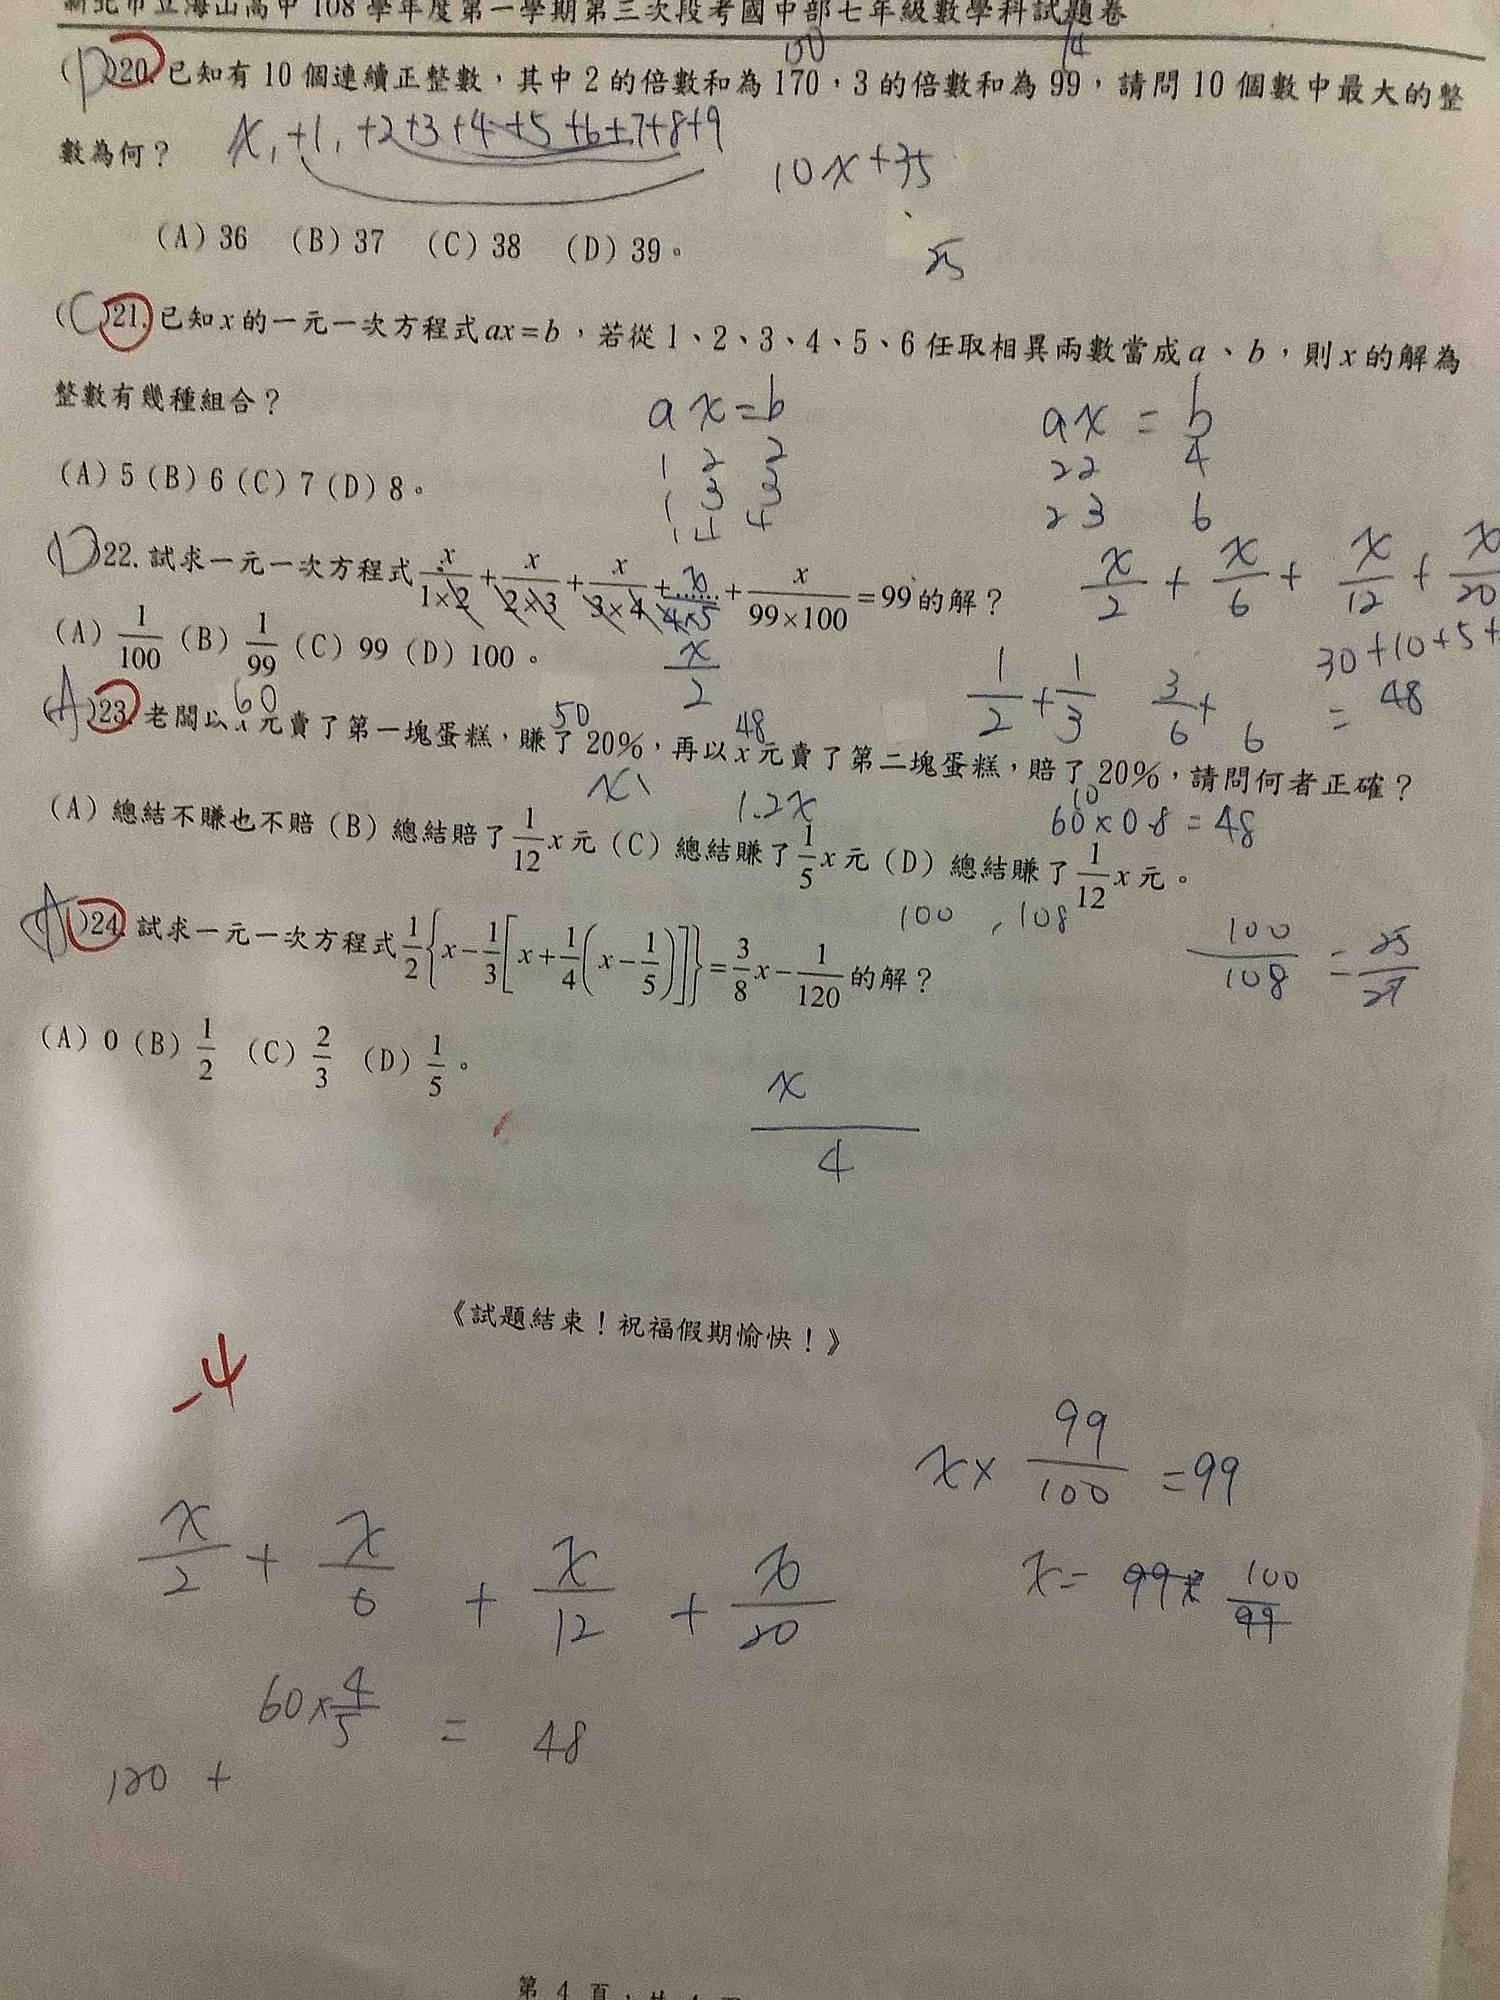 新北市立海山高中 108 學年度第一學期第三次段考國中部七年級數學科試題卷
(D)20. 已知有 10 個連續正整數，其中 2 的倍數和為 170，3 的倍數和為 99，請問 10 個數中最大的整
數為何？
x, +1, +2+3+4+5+6+7+8+9
10x+35
(A) 36 (B) 37 (C) 38 (D) 39。
(C)21. 已知 x 的一元一次方程式 ax=b，若從 1、2、3、4、5、6 任取相異兩數當成 a、b，則 x 的解為
整數有幾種組合？
ax=b ax=b
1 2 2 22 4
1 3 3 23 6
1 4 4
(A) 5 (B) 6 (C) 7 (D) 8。
(D)22. 試求一元一次方程式 x/(1×2) + x/(2×3) + x/(3×4) + …… + x/(99×100) = 99 的解？
x/(4×5)
x/2 + x/6 + x/12 + x/20
(A) 1/100 (B) 1/99 (C) 99 (D) 100。
x/2
1/2 + 1/3 3/6 + 6
30+10+5+
= 48
60 50 48
(A)23. 老闆以 x 元賣了第一塊蛋糕，賺了 20%，再以 x 元賣了第二塊蛋糕，賠了 20%，請問何者正確？
1.2x
60×0.8=48
(A) 總結不賺也不賠 (B) 總結賠了 1/12 x 元 (C) 總結賺了 1/5 x 元 (D) 總結賺了 1/12 x 元。
100 , 108
100/108 = 25/27
(A)24. 試求一元一次方程式 1/2{x-1/3[x+1/4(x-1/5)]}=3/8x-1/120 的解？
(A) 0 (B) 1/2 (C) 2/3 (D) 1/5。
x/4
《試題結束！祝福假期愉快！》
-4
x× 99/100 =99
x/2 + x/6 + x/12 + x/20
x= 99× 100/99
60×4/5 = 48
120 +
第 4 頁，共